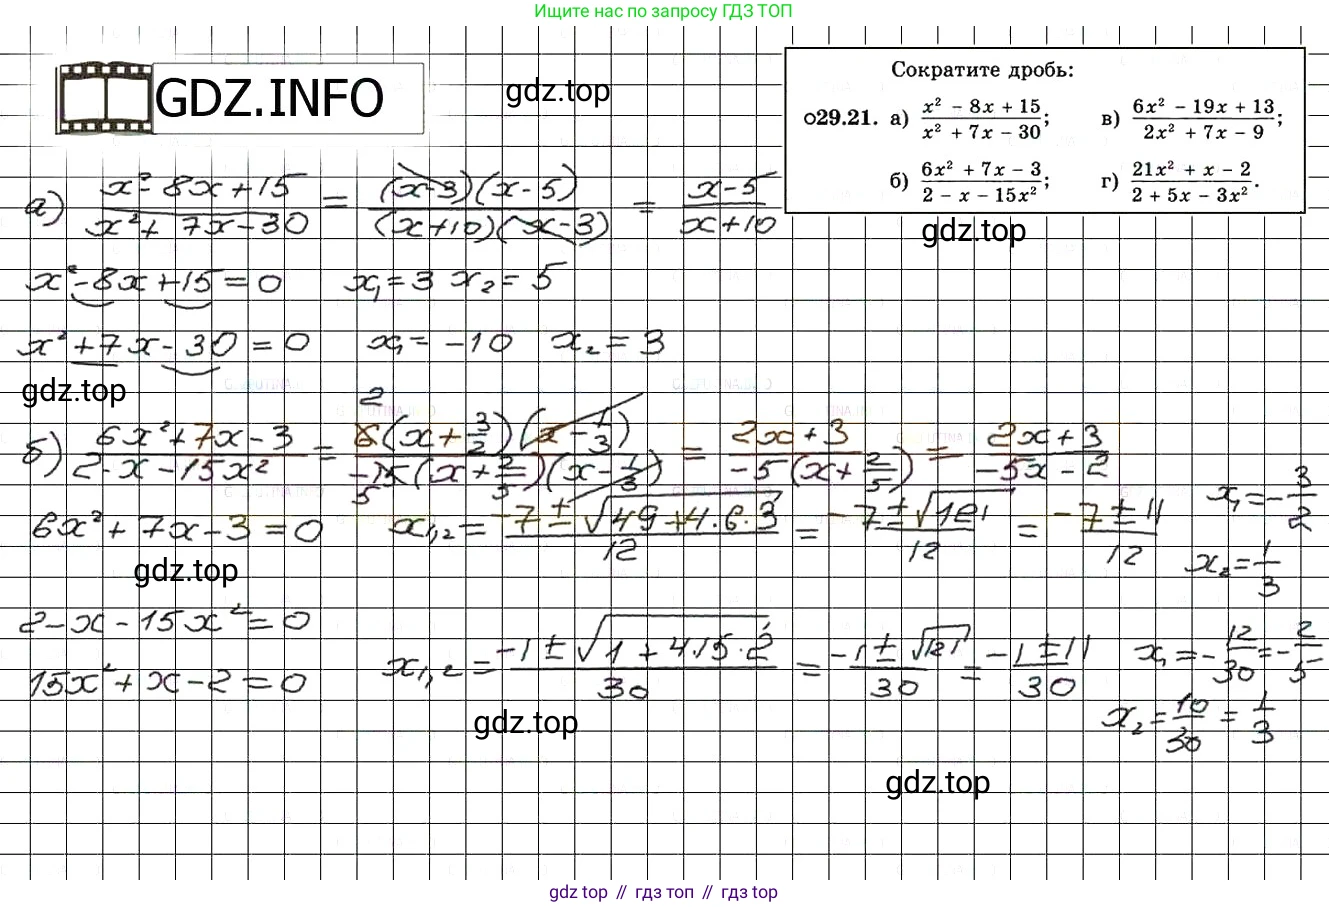 Ищите нас по запросу ГДЗ ТОП
GDZ.INFO
gdz.top
Сократите дробь:
о29.21. а) (x² - 8x + 15)/(x² + 7x - 30); в) (6x² - 19x + 13)/(2x² + 7x - 9);
б) (6x² + 7x - 3)/(2 - x - 15x²); г) (21x² + x - 2)/(2 + 5x - 3x²).
gdz.top
а) (x² - 8x + 15)/(x² + 7x - 30) = ((x-3)(x-5))/((x+10)(x-3)) = (x-5)/(x+10)
x² - 8x + 15 = 0 x₁ = 3 x₂ = 5
x² + 7x - 30 = 0 x₁ = -10 x₂ = 3
gdz.top
б) (6x² + 7x - 3)/(2 - x - 15x²) = (6 2 (x + 3/2)(x - 1/3))/(-15 5 (x + 2/5)(x - 1/3)) = (2x + 3)/(-5(x + 2/5)) = (2x + 3)/(-5x - 2)
6x² + 7x - 3 = 0 x₁,₂ = (-7 ± √(49 + 4·6·3))/12 = (-7 ± √121)/12 = (-7 ± 11)/12 x₁ = -3/2
x₂ = 1/3
gdz.top
2 - x - 15x² = 0
15x² + x - 2 = 0 x₁,₂ = (-1 ± √(1 + 4·15·2))/30 = (-1 ± √121)/30 = (-1 ± 11)/30 x₁ = -12/30 = -2/5
x₂ = 10/30 = 1/3
gdz.top
gdz.top
gdz top // гдз топ // гдз top